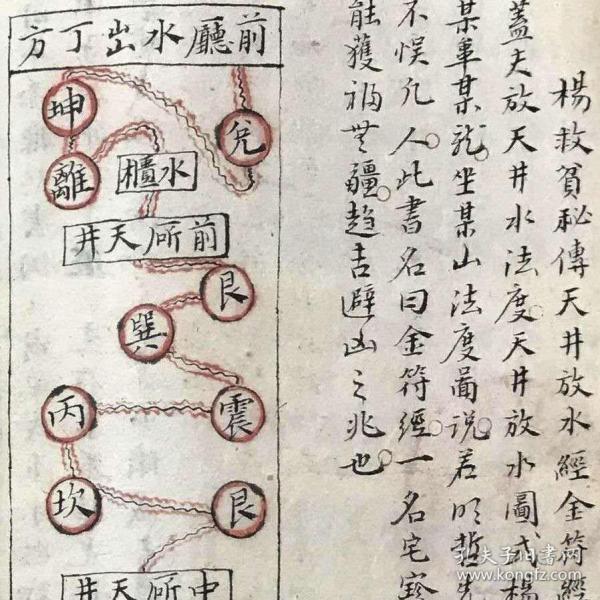 楊救貧秘傳天井放水經金符經
蓋夫放天井水法度天井放水圖式楊
某車某龍坐某山法度啚說若明哲先
不悮凡人此書名曰金符經一名宅寳
能獲福無疆趋吉避凶之兆也
前廳水出丁方
坤
兌
離
水櫃
前所天井
艮
巽
丙
震
坎
艮
中所天井
孔夫子旧书网
www.kongfz.com